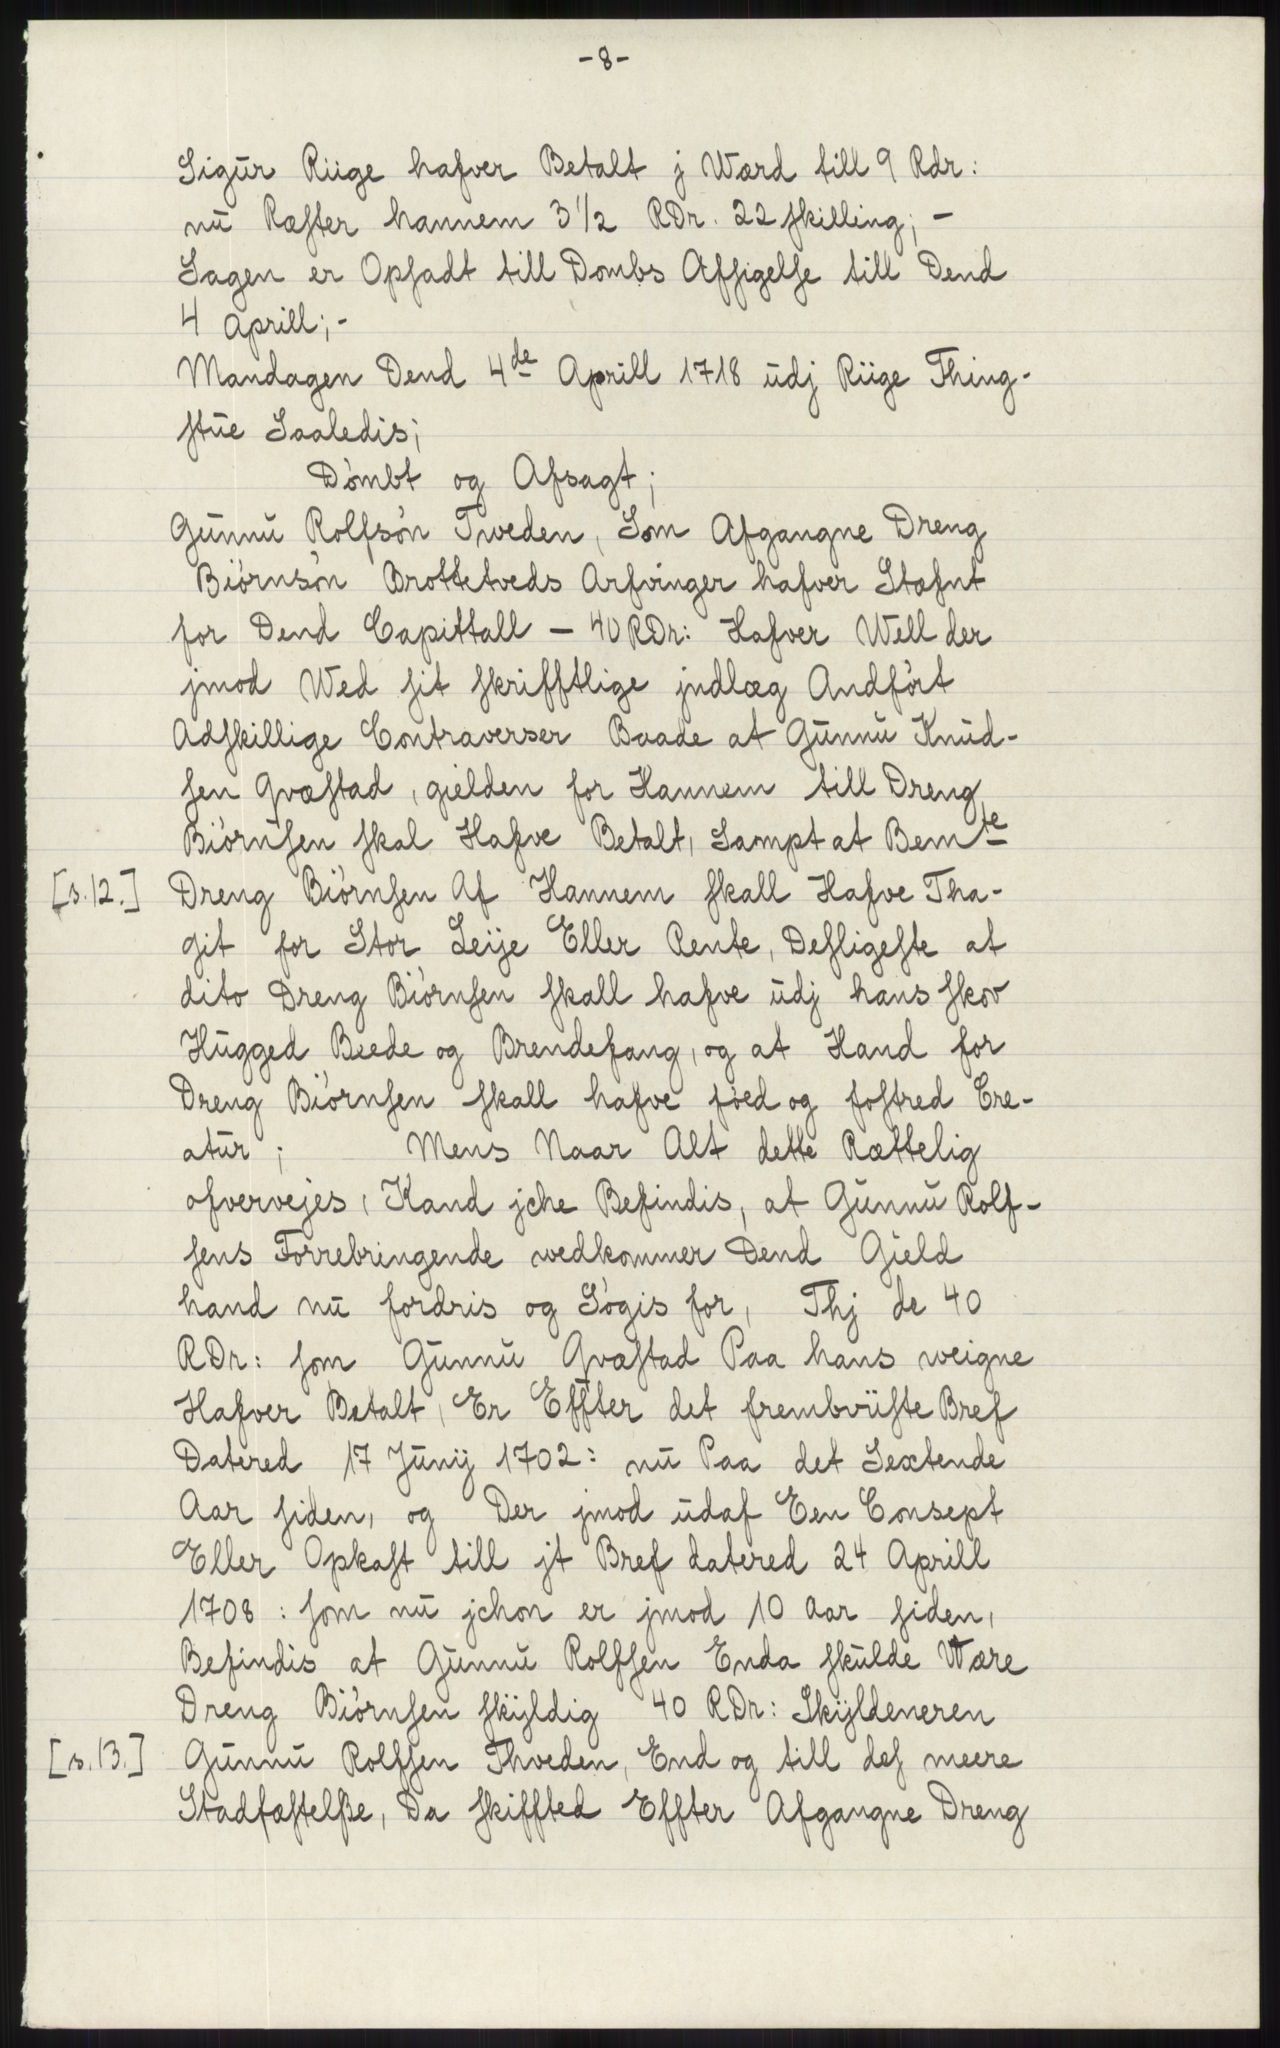 -8-
Sigur Riige hafver Betalt j Ward till 9 Rdr:
nu Ræster hannem 3 1/2 RDr. 22 skilling; -
Sagen er Opsadt till Dombs Afsigelse till Dend
4 Aprill; -
Mandagen Dend 4de Aprill 1718 udj Riige Thing-
stue Saaledis;
Dömbt og Afsagt;
Gunnu Rolfsön Tweden, Som Afgangne Dreng
Biörnsön Brottetveds Arfvinger hafver Stæfnt
for Dend Capittall - 40 RDr: Hafver Well der
jmod Wed sit skrifftlige jndlæg Andfört
Adskillige Contraverser Baade at Gunnu Knud-
sen Qvæstad, gielden for Hannem till Dreng
Biörnsen skal Hafve Betalt, Sampt at Bemte
[s.12.] Dreng Biörnsen Af Hannem skall Hafve Tha-
git for Stor Leije Eller Rente, Desligeste at
dito Dreng Biörnsen skall hafve udj hans skov
Hugged Beede og Brendefang, og at Hand for
Dreng Biörnsen skall hafve föed og fostred Cre-
atur; Mens Naar Alt dette Rættelig
ofvervejes, Kand jche Befindis, at Gunnu Rolf-
sens Forrebringende wedkommer Dend Gield
hand nu fordris og Sögis for, Thj de 40
RDr: som Gunnu Qvæstad Paa hans weigne
Hafver Betalt, Er Effter det frembviiste Bref
Datered 17 Junij 1702: nu Paa det Sextende
Aar siden, og Der jmod udaf Een Consept
Eller Opkast till jt Bref datered 24 Aprill
1708: som nu jchon er jmod 10 Aar siden,
Befindis at Gunnu Rolfsen Enda skulde Wære
Dreng Biörnsen skyldig 40 RDr: Skyldeneren
[s.13.] Gunnu Rolfsen Thveden, End og till des meere
Stadfæstelße, Da skiffted Effter Afgangne Dreng